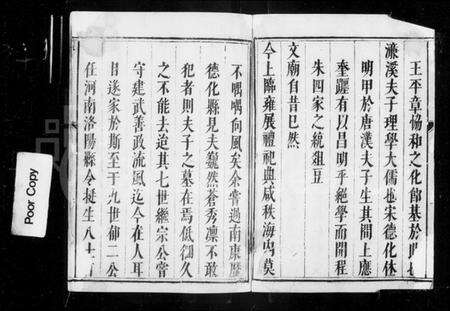 王平章協和之化節基於此
濂溪夫子理學大儒也宋德化休
明甲於唐漢夫子生其間上應
奎躔有以昌明乎絕學而開程
朱四家之統俎豆
文廟自昔已然
今上臨雍展禮祀典咸秩海內莫
不喁喁向風矣余嘗過南康歷
德化縣見夫巍然蒼秀凜不敢
犯者則夫子之墓在焉低徊久
之不能去迨其七世繼宗公嘗
守建武善政流風迄今在人耳
目遂家於斯至于九世郁二公
任河南洛陽縣令挺生八十
Poor Copy